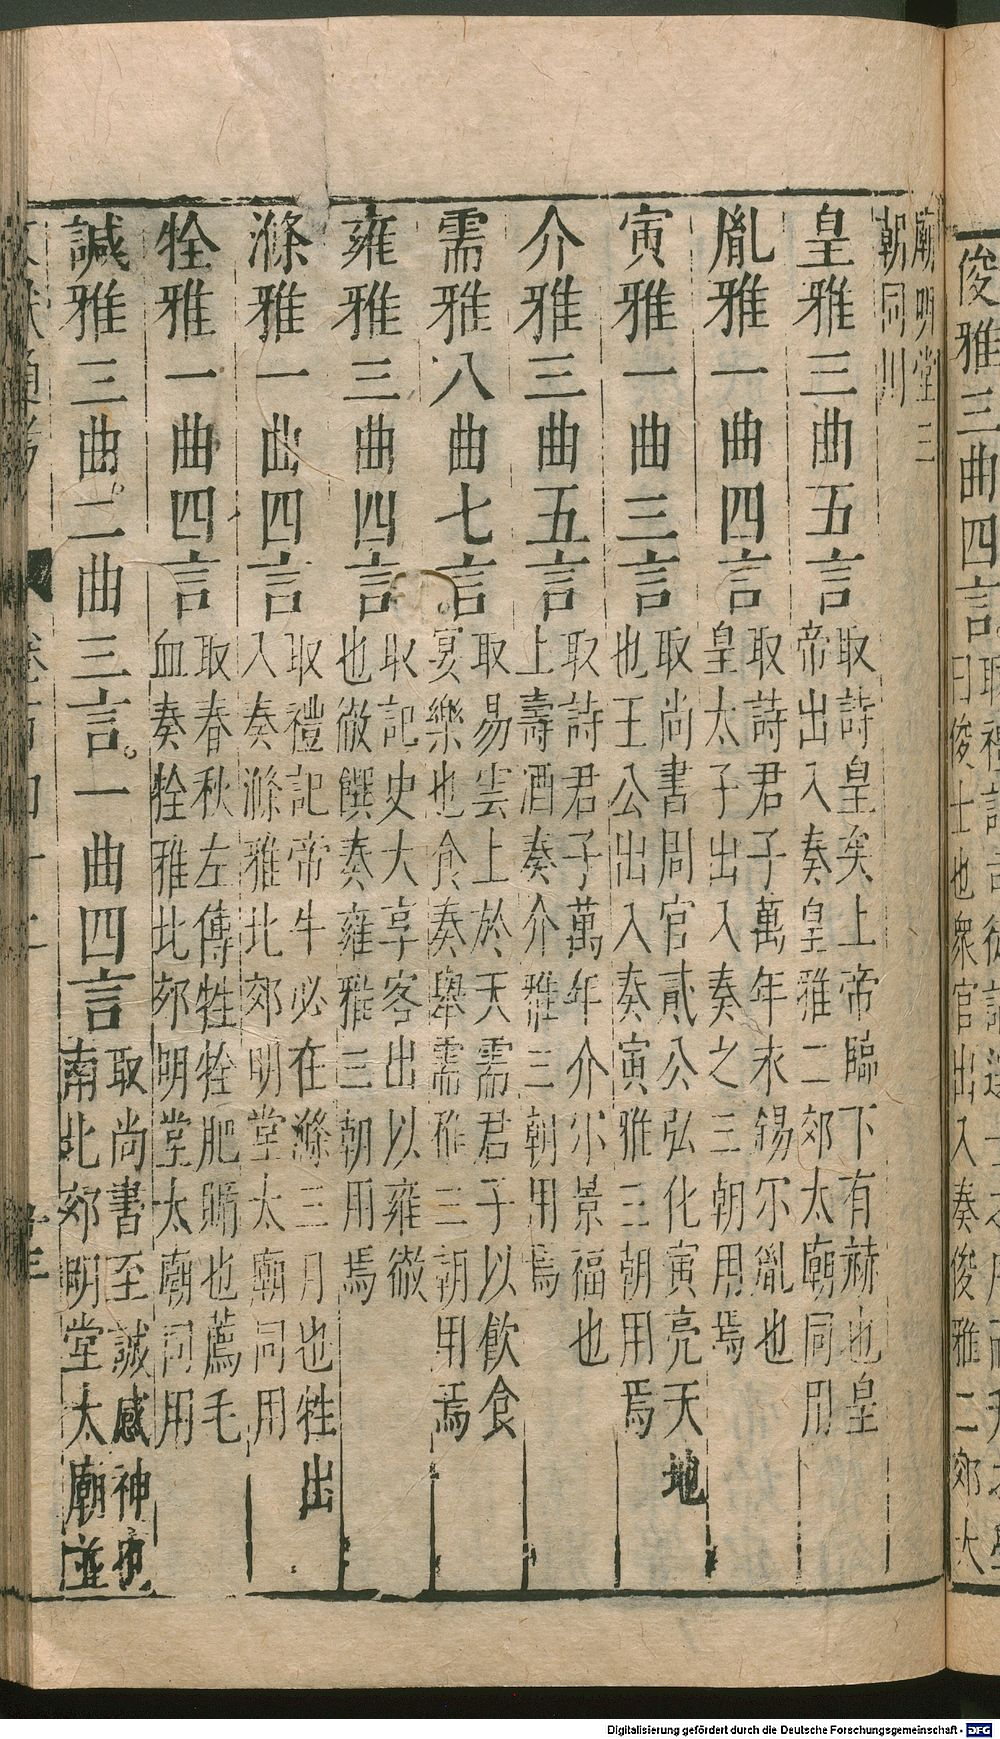 俊雅三曲四言
曰俊士也衆官出入奏俊雅二郊大
廟明堂三
朝同川
皇雅三曲五言
取詩皇矣上帝臨下有赫也皇
帝出入奏皇雅二郊太廟同用
胤雅一曲四言
取詩君子萬年永錫尔胤也
皇太子出入奏之三朝用焉
寅雅一曲三言
取尚書周官貳公弘化寅亮天地
也王公出入奏寅雅三朝用焉
介雅三曲五言
取詩君子萬年介尒景福也
上壽酒奏介雅三朝用焉
需雅八曲七言
取易雲上於天需君子以飲食
宴樂也食奏舉需雅三朝用焉
雍雅三曲四言
取記史大享客出以雍徹
也徹饌奏雍雅三朝用焉
滌雅一曲四言
取禮記帝牛必在滌三月也牲出
入奏滌雅北郊明堂太廟同用
牷雅一曲四言
取春秋左傳牲牷肥腯也薦毛
血奏牷雅北郊明堂太廟同用
諴雅三曲二曲三言一曲四言
取尚書至諴感神也
南北郊明堂太廟並
Digitalisierung gefördert durch die Deutsche Forschungsgemeinschaft - DFG